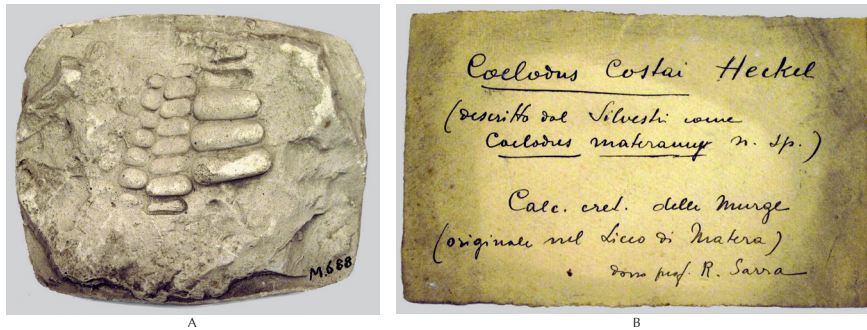 M.688
Coelodus Costai Heckel
(descritto dal Silvestri come
Coelodus materanus n. sp.)
Calc. cret. delle Murge
(originale nel Liceo di Matera)
dono prof. R. Sarra
A
B